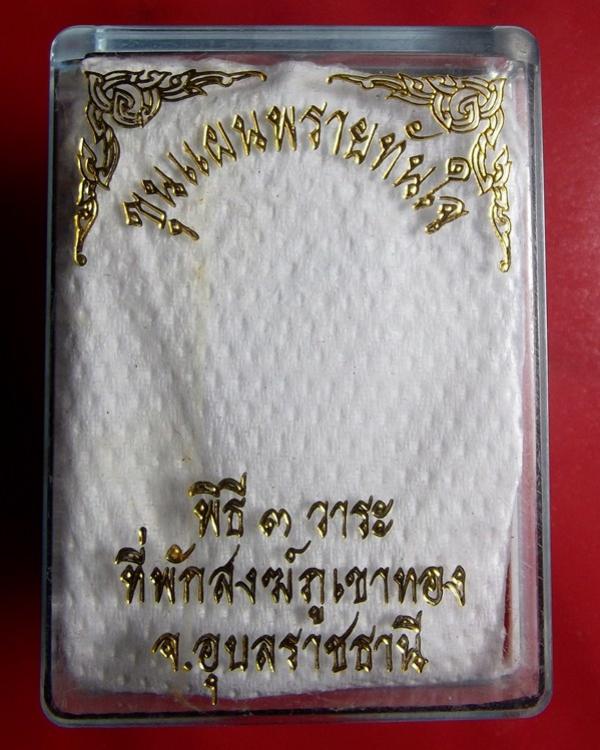 ขุนแผนพรายทันใจ
พิธี ๓ วาระ
ที่พักสงฆ์ภูเขาทอง
จ.อุบลราชธานี